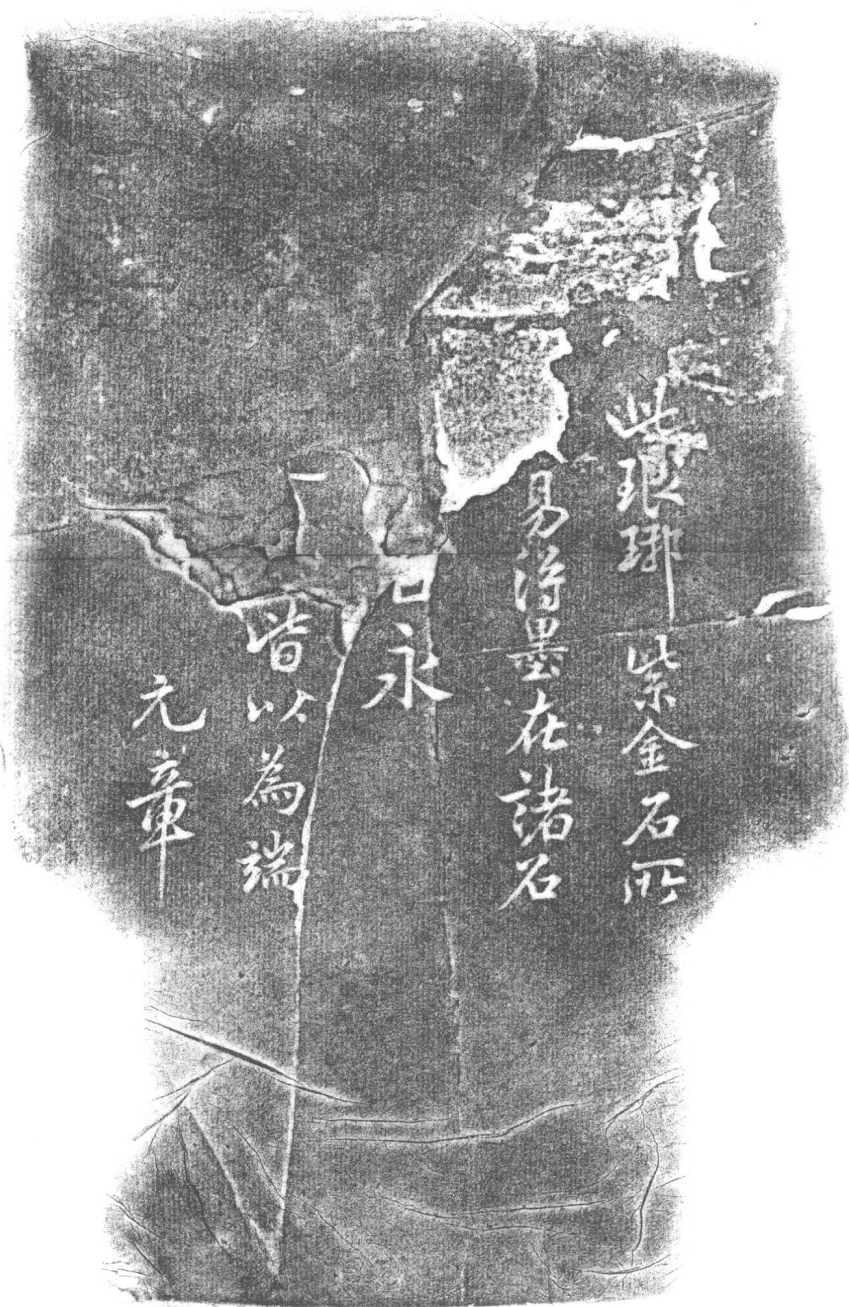 此琅琊紫金石所
易得墨在諸石
永
皆以為端
元章